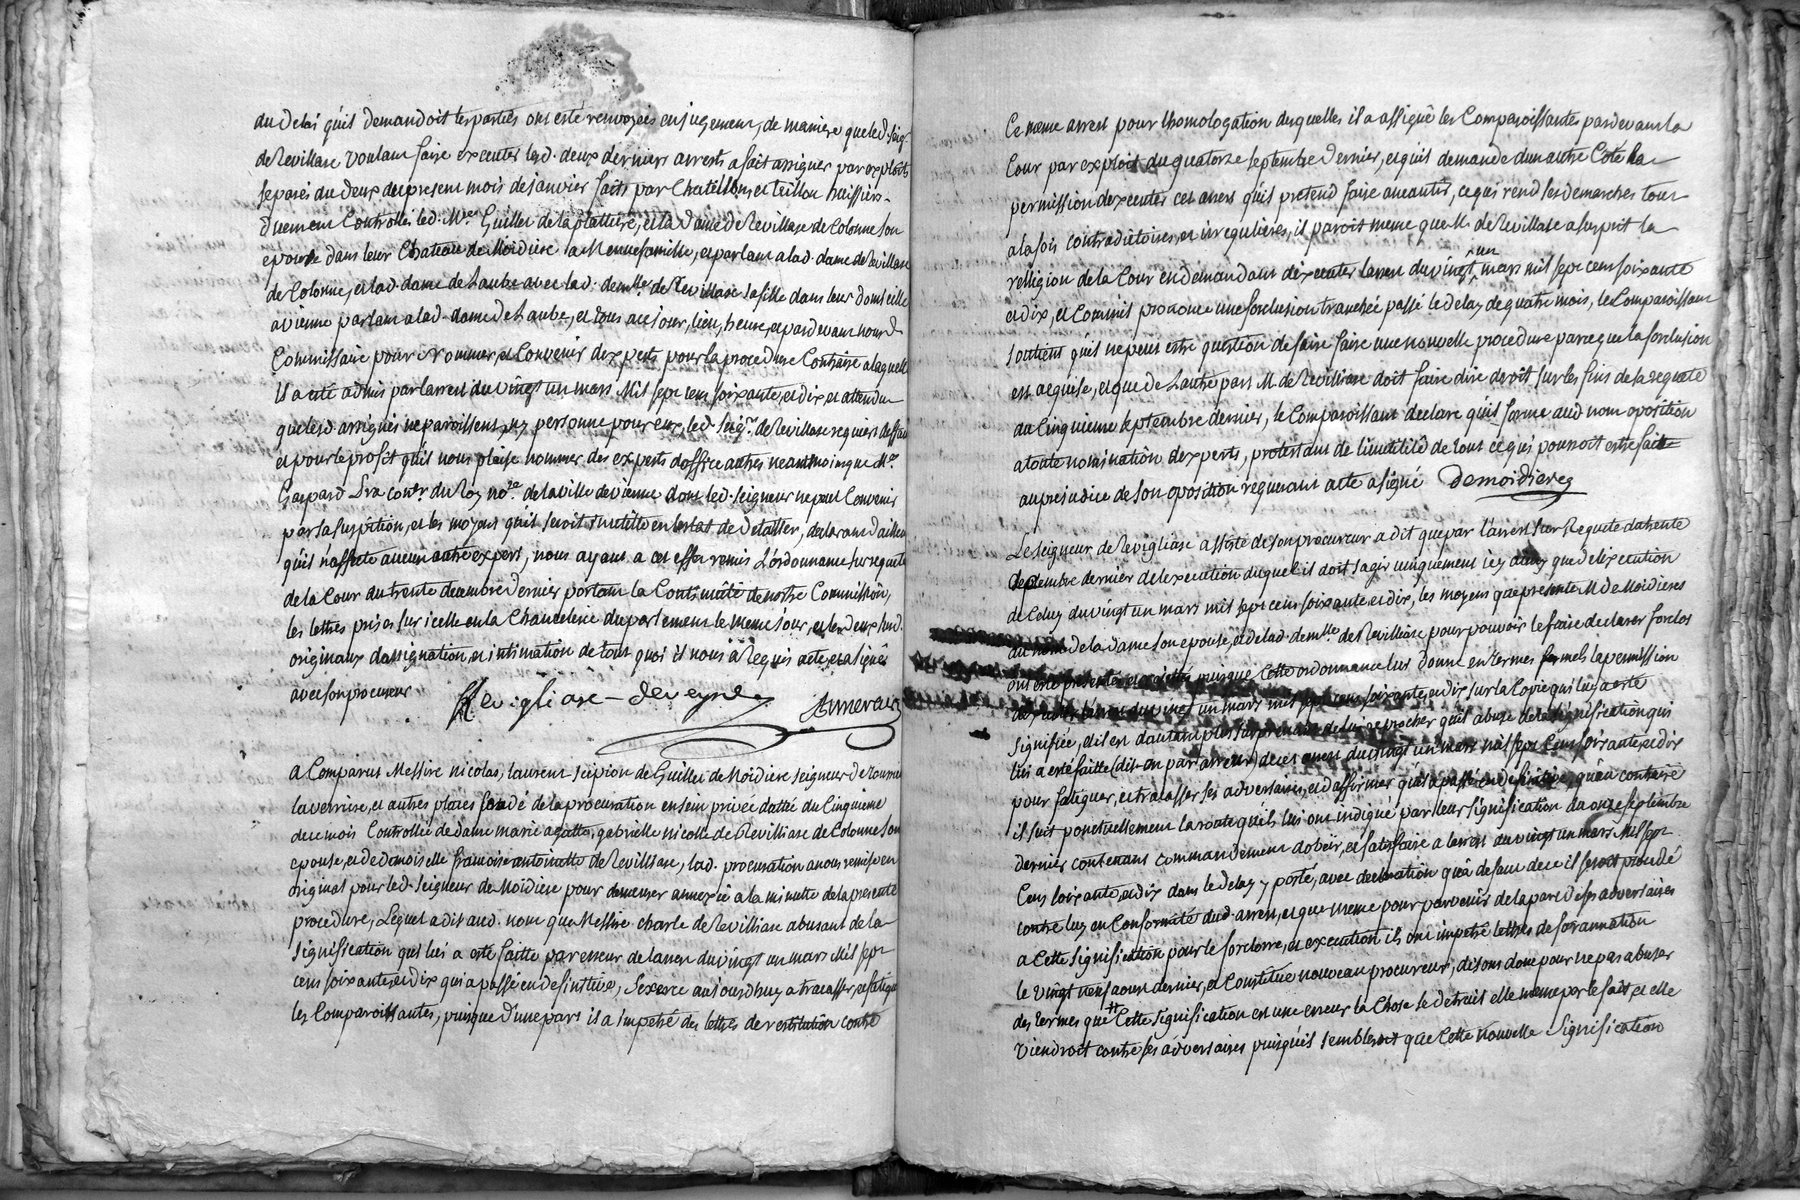 du delai quil demandoit les parties ont esté renvoyées en jugement, de maniere que led. seigr.
de Revillase voulant faire executer lesd. deux derniers arrests a fait assigner par exploits
separés du deux du present mois de janvier faits par Chatillon et Trillou huissiers
duement Controllés led. Mre. Guillet de la platiere, et la dame de Revillase de Colonne son
epouse dans leur Chateau de Moidiere a Mennefamille, et parlant a lad. dame de Revillase
de Colonne, et lad. dame de Laube avec lad. demlle. de Revillase sa fille dans leur domicille
a vienne parlant a lad. dame de Laube, et tous a ce jour, lieu, heure, et pardevant nousd.
Commissaire pour Nommer, et Convenir dexperts pour la procedure Contraire a laquelle
il a eté admis par larrest du vingt un mars Mil sept cent soixante, et dix et attendu
que lesd assignés ne paroissent, ny personne pour eux, led. seigr. de Revillase requiert deffaut
et pour le profit quil nous plaise nommer des experts doffice autres neantmoins que Me.
Gaspard coner. du Roy nore. de la ville de vienne dont led. seigneur ne peut Convenir
par sa suspition, et les moyens quil seroit inutille en lestat de detailler, declarant dailleurs
quil n'affecte aucun autre expert, nous ayant a cet effet remis L'ordonnance sur requete
de la Cour du trente decembre dernier portant la Continuité de nostre Commission,
les lettres prises sur icelle en la Chancelerie du parlement le meme jour, et les deux susd.
originaux dassignation, et intimation de tout quoi il nous a Requis acte, et a signé
avec son procureur Revigliase - deveynes Annequin
a Comparus Messire nicolas, laurent-scipion de Guillet de Moidiere seigneur de
laverrine, et autres places fondé de la procuration en sein privée dattée du Cinquieme
de ce mois Controllée de dame marie agatte, gabrielle nicolle de Revilliase de Colonne son
epouse, et de demoiselle francoise antoinette de Revilliase, lad. procuration a nous remise en
original pour led. seigneur de Moidiere pour demeurer annexée a la minutte de la presente
procedure, Lequel a dit aud. nom que Messire charle de Revilliase abusant de la
signification qui lui a esté faitte par erreur de larrest du vingt un mars Mil sept
cent soixante, et dix qui a passé en definitive, s'exerce aujourdhuy a tracasser, et fatiguer
les Comparoissantes, puisque d'une part il a impetré des lettres de restitution contre
Ce meme arrest pour l'homologation desquelles il a assigné les Comparoissantes pardevant la
Cour par exploit du quatorze septembre dernier, et quil demande dun autre Coté la
permission dexecuter cet arrest quil pretend faire aneantir, ce qui rend ses demarches tout
a la fois contradictoires, et irregulieres, il paroit meme que M. de Revillase a surprit la
relligion de la Cour en demandant dexecuter larrest du vingt un mars mil sept cent soixante
et dix, et comm'il prononce une forclusion tranchée passé le delay de quatre mois, le Comparoissant
soutient quil ne peut estre question de faire faire une nouvelle procedure parce que la forclusion
est acquise, et que de Lautre part M. de Revilliase doit faire dire droit sur les fins de sa requete
du Cinquieme septembre dernier, le Comparoissant declare quil forme aud nom oposition
a toute nomination dexperts, protestant de linutilité de tout ce qui pourroit estre faitte
au prejudice de son oposition requerant acte a signé Demoidieres
Le seigneur de Revigliase assisté de son procureur a dit que par l'arrest sur Requete du trente
decembre dernier de lexecution duquel il doit sagir uniquement icy autant que de lexecution
de Celuy du vingt un mars mil sept cent soixante et dix, les moyens que presente M. de Moidieres
au nom de la dame son epouse, et de lad. demlle. de Revilliase pour pouvoir le faire declarer forclos
ont esté presenté, et rejettés puisque Cette ordonnance lui donne en termes formels la permission
dexecuter larrest du vingt un mars mil sept cent soixante, et dix sur la Copie qui luy a esté
signifiée, et il est dautant plus surprenant de lui reprocher quil abuse de la signification qui
lui a esté faitte (dit-on par erreur) de cet arrest du vingt un mars mil sept cent soixante, et dix
pour fatiguer, et tracasser ses adversaires, et daffirmer quil a passé en definitive, qu'au contraire
il suit ponctuellement la route quils lui ont indiqué par leur signification du onze septembre
dernier contenant commandement dobeir, et satisfaire a larrest du vingt un mars Mil sept
Cent soixante, et dix dans le delay y porté, avec declaration qu'a defaut de ce il seroit procedé
contre luy en Conformité dud. arrest, et que meme pour parvenir de la part de ses adversaires
a Cette signification pour le forclorre, et execution ils ont impetré lettres de surannation
le vingt neuf aout dernier, et Constitué nouveau procureur, disons donc pour ne pas abuser
des termes que Cette signification est une erreur la Chose se detruit elle meme par le fait, et elle
viendroit contre ses adversaires puisquil sembleroit que Cette nouvelle signification